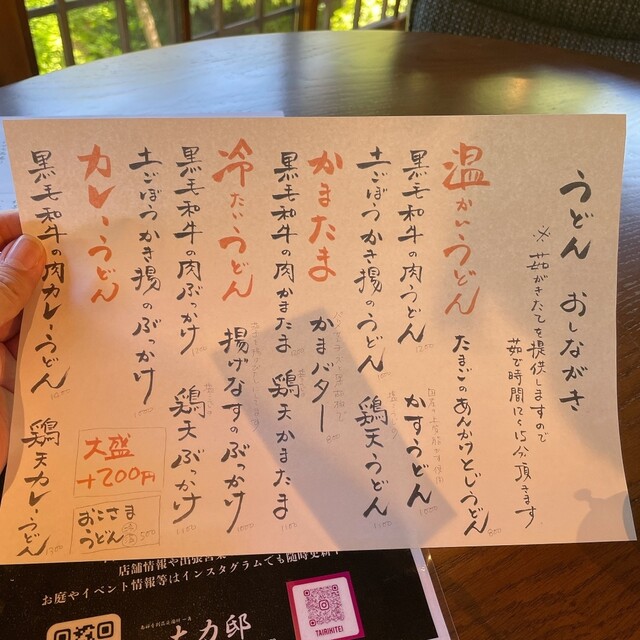 うどん おしながき
※ 茹がきたてを提供しますので
茹で時間12〜15分頂きます
温かいうどん
たまごのあんかけとじうどん 800
黒毛和牛の肉うどん 1200
かすうどん 1000
土ごぼうかき揚のうどん
鶏天うどん 1100
かまたま
かまバター 800
黒毛和牛の肉かまたま
鶏天かまたま 1100
冷たいうどん
揚げなすのぶっかけ 1000
黒毛和牛の肉ぶっかけ
鶏天ぶっかけ 1100
土ごぼうかき揚のぶっかけ
カレーうどん
黒毛和牛の肉カレーうどん
鶏天カレーうどん
大盛
+200円
おこさま
うどん 500
店舗情報や出張営業
お庭やイベント情報等はインスタグラムでも随時更新
TAIRIKITEI
大力邸